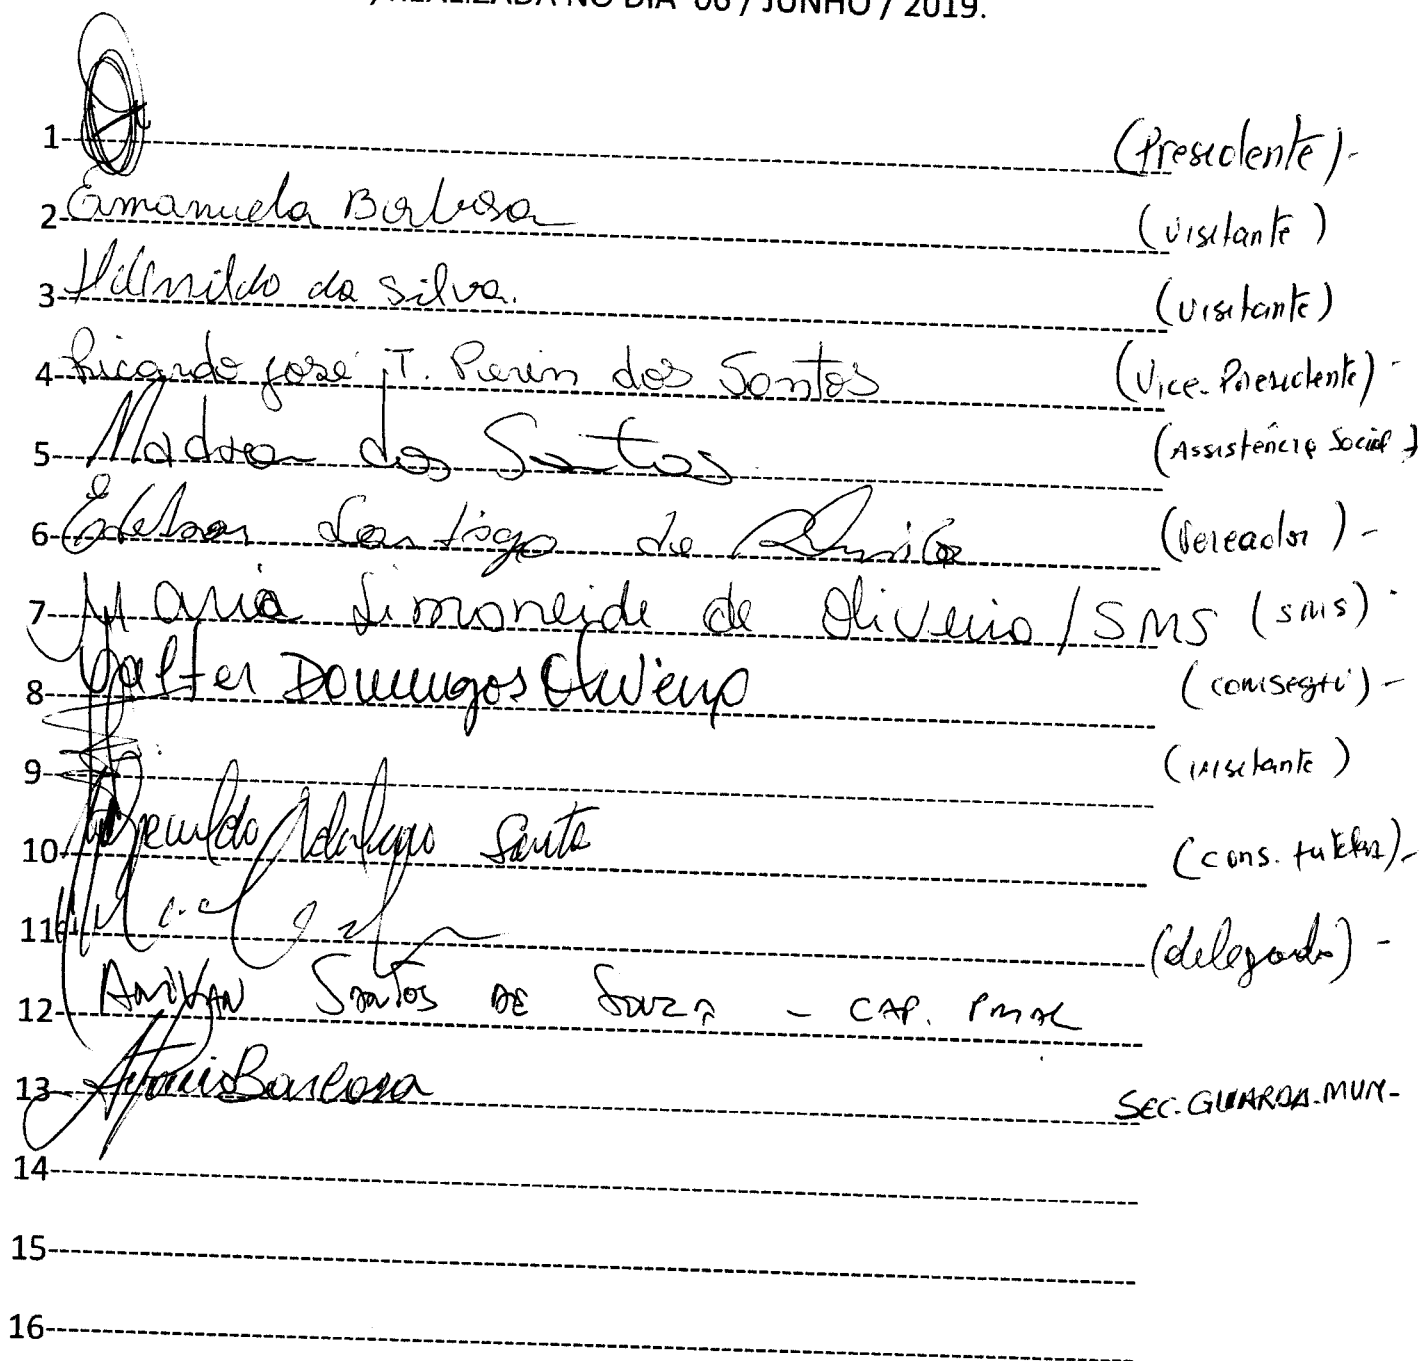 REALIZADA NO DIA 06 / JUNHO / 2019.
1 (Presidente)-
2 Emanuela Barbosa (visitante)
3 da Silva. (visitante)
4 Ricardo José T. Pierin dos Santos (Vice-Presidente)-
5 dos Santos (Assistência Social)
6 Santiago de (Vereador)-
7 Maria Simoneide de Oliveira / SMS (SMS)
8 Valter Domingos Oliveira (comsegti)-
9 (visitante)
10 (cons. tutelar)-
11 (delegado)-
12 Anivan Santos DE Souza - CAP. PMAL
13 Barbosa SEC. GUARDA. MUN-
14
15
16